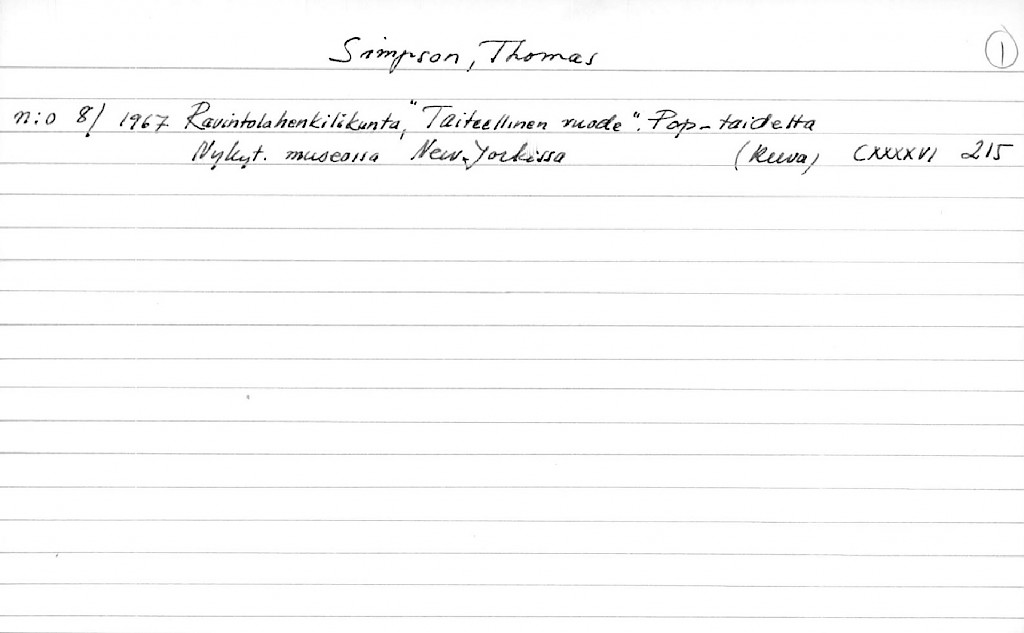 Simpson, Thomas
1
n:o 8/ 1967 Ravintolahenkilökunta, "Taiteellinen vuode". Pop-taidetta
Nykyt. museossa New-Yorkissa (kuva) CXXXXVI 215